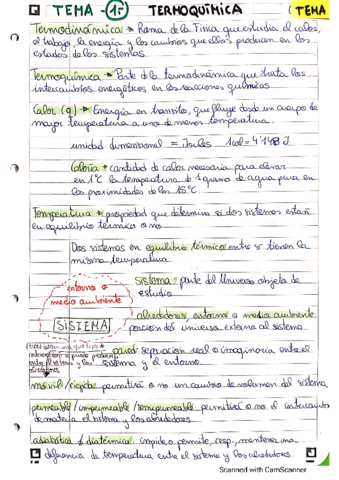 TEMA -1- TERMOQUÍMICA (TEMA
Termodinámica → Rama de la Física que estudia el calor,
el trabajo, la energía y los cambios que ellos producen en los
estados de los sistemas.
Termoquímica → Parte de la termodinámica que trata los
intercambios energéticos en las reacciones químicas
Calor (q) → Energía en transito, que fluye desde un cuerpo de
mayor temperatura a uno de menor temperatura.
unidad dimensional = Julios 1cal = 4'148 J
Caloría → cantidad de calor necesaria para elevar
en 1°C la temperatura de 1 gramo de agua pura en
las proximidades de los 15°C.
Temperatura → propiedad que determina si dos sistemas están
en equilibrio térmico o no
Dos sistemas en equilibrio térmico entre sí tienen la
misma temperatura
entorno o
medio ambiente
SISTEMA
sistema: parte del Universo objeto de
estudio
alrededores, entorno o medio ambiente
porción del universo externo al sistema
pared separación real o imaginaria entre el
sistema y el entorno.
móvil/rígida permitirá o no un cambio de volumen del sistema
permeable/impermeable/semipermeable permitirá o no el intercambio
de materia el sistema y los alrededores
adiabática o diatérmica impide o permite, resp., mantener una
diferencia de temperatura entre el sistema y los alrededores.
Scanned with CamScanner